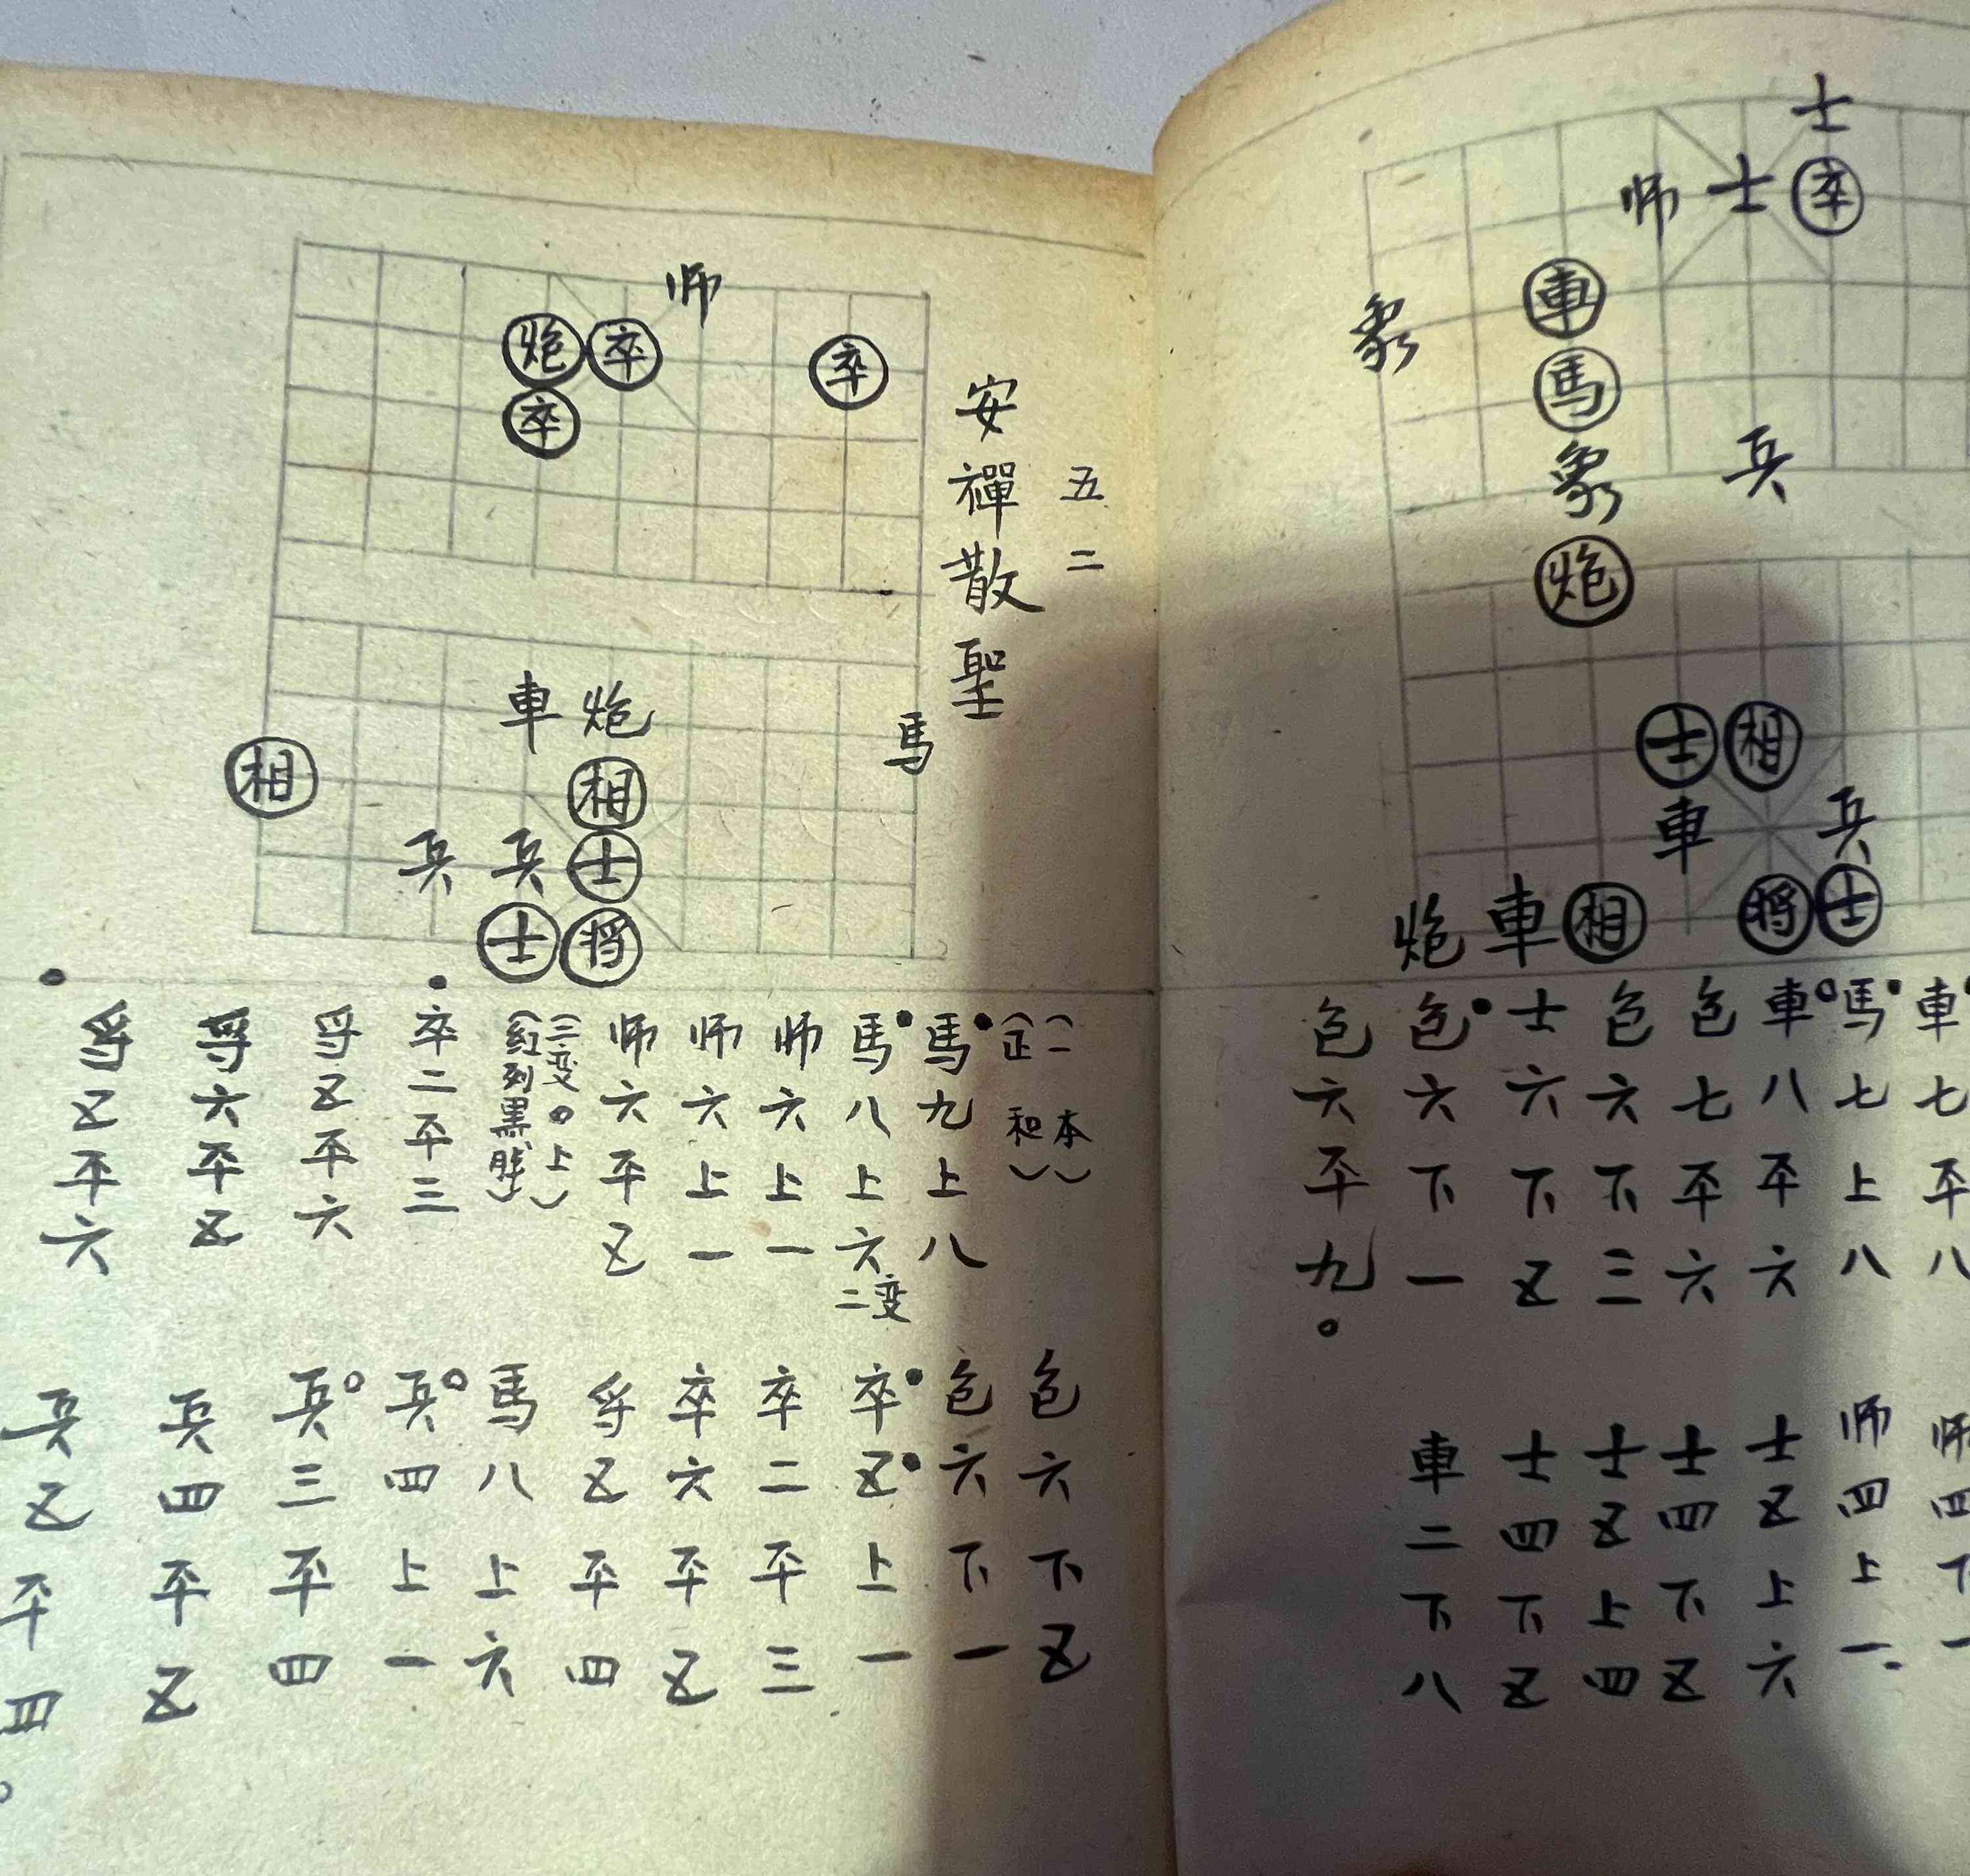 师
炮 卒 卒
卒
車 炮
馬
相 相
兵 兵 士
士 将
五二
安禪散聖
(一本)
(正和)
馬九上八
馬八上六
二变
师六上一
师六上一
师六平五
(三变。上)
(紅列黑勝)
卒二平三
将五平六
将六平五
将五平六
包六下五
包六下一
卒五上一
卒二平三
卒六平五
将五平四
馬八上六
兵四上一
兵三平四
兵四平五
兵五平四
士
师 士 卒
車
象
馬
象 兵
炮
士 相
車 兵
炮 車 相 将 士
車七平八
馬七上八
車八平六
包七平六
包六下三
士六下五
包六下一
包六平九。
师四下一
师四上一
士五上六
士四下五
士五上四
士四下五
車二下八